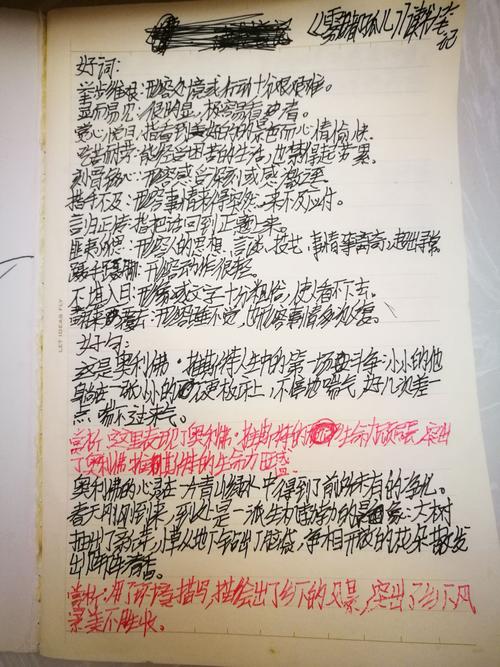 《雾都孤儿》读书笔记
好词：
举步维艰：形容处境或行动十分艰难。
显而易见：很明显，极容易看清楚。
赏心悦目：指看到美好的景色而心情愉快
吃苦耐劳：能经受困苦的生活，也禁得起劳累
刻骨铭心：形容感受深刻或感激之至
措手不及：形容事情来得突然，来不及应付。
言归正传：指把话回到正题上来。
匪夷所思：形容人的思想、言谈、技艺、事情等离奇，超出寻常
蹑手蹑脚：形容动作很轻。
不堪入目：形容或文字十分粗俗，使人看不下去。
翻来覆去：形容睡不安，也形容事情多次反复。
好句：
这是奥利佛·推斯特人生中的第一场斗争：小小的他
躺在一张小小的硬板床上，不停地喘气，好几次差一
点喘不过来气。
赏析：这里表现了奥利佛·推斯特的生命力顽强，突出
了奥利佛·推斯特的生命力旺盛
奥利佛的心灵在一方青山绿水中得到了前所未有的净化。
春天风风火火到来，到处是一派生机勃勃的景象：大树
抽出了新芽，小草从地下钻出了脑袋，争相开放的花朵散发
出阵阵清香。
赏析：用了环境描写，描绘出了乡下的风景，突出了乡下风
景美不胜收。
LET IDEAS FLY